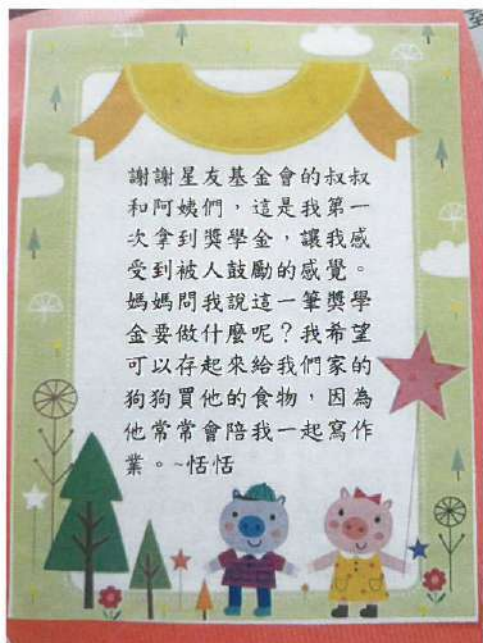 謝謝星友基金會的叔叔
和阿姨們，這是我第一
次拿到獎學金，讓我感
受到被人鼓勵的感覺。
媽媽問我說這一筆獎學
金要做什麼呢？我希望
可以存起來給我們家的
狗狗買他的食物，因為
他常常會陪我一起寫作
業。~恬恬